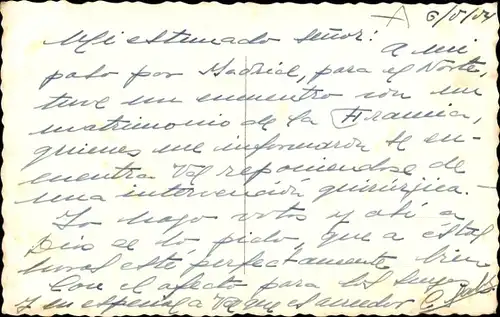 6/V/54
Mi estimado señor: A mi
paso por Madrid, para el Norte,
tuve un encuentro con un
matrimonio de la
quienes me informaron se en-
cuentra Vd reponiendose de
una intervención quirúrjica.-
Yo hago votos y así a
Dios se lo pido, que a éstas
horas esté perfectamente bien
Con el afecto para los suyos
y su esposa Vd que es